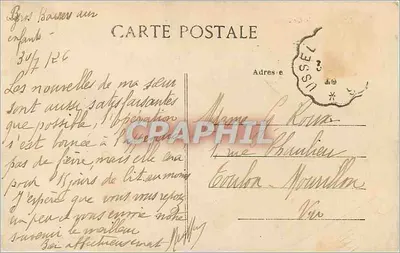 Gros Baisers aux
enfants
CARTE POSTALE
30/7/26
Adresse
USSEL
Les nouvelles de ma sœur
sont aussi satisfaisantes
que possible, l'opération
s'est bornée à
pas de mais elle en a
pour 15 jours de lit au moins
J'espère que vous vous reposez
un peu et vous envoie notre
souvenir le meilleur
Bien affectueusement
CPAPHIL.COM
Mme Le Roux
rue Chaulieu
Toulon-Mourillon
Var